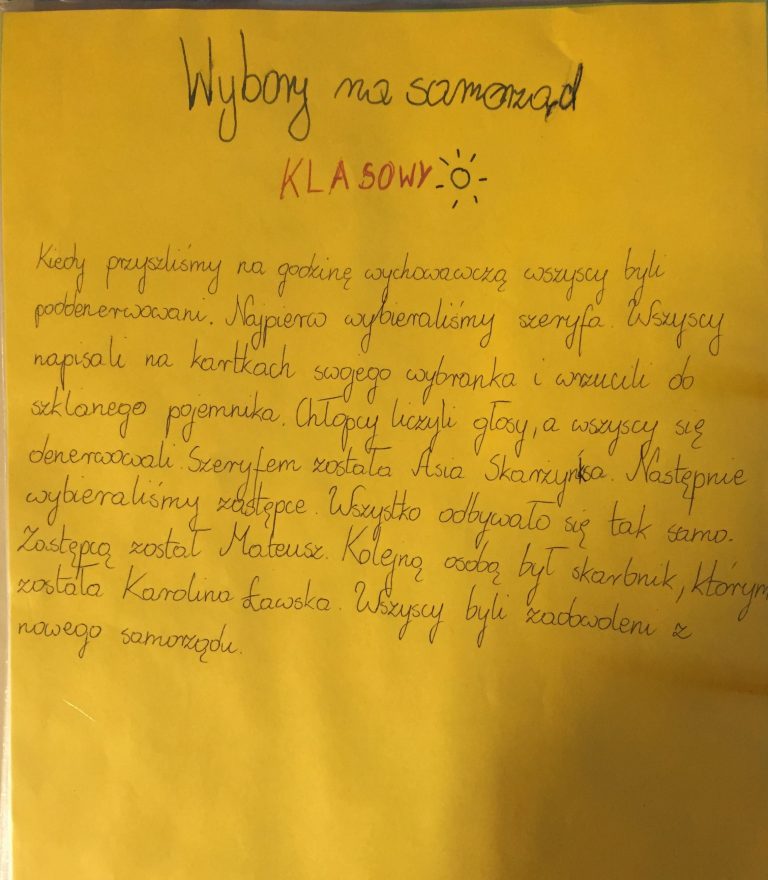 Wybory na samorząd
KLASOWY
Kiedy przyszliśmy na godzinę wychowawczą wszyscy byli
poddenerwowani. Najpierw wybieraliśmy szeryfa. Wszyscy
napisali na kartkach swojego wybranka i wrzucili do
szklanego pojemnika. Chłopcy liczyli głosy, a wszyscy się
denerwowali. Szeryfem została Asia Skarżyńsa. Następnie
wybieraliśmy zastępce. Wszystko odbywało się tak samo.
Zastępcą został Mateusz. Kolejną osobą był skarbnik, którym
została Karolina Ławska. Wszyscy byli zadowoleni z
nowego samorządu.